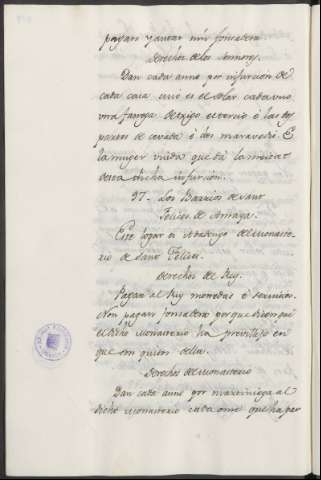 pagaro yantar nin fonsadera
Derechos de los Sennores.
Dan cada anno por infurción de
cada casa cuio es el solar cada uno
una fanega de trigo el tercio é las dos
partes de cevada é dos maravedis. E
la muger viuda que dá la meitat
desta dicha infurción.
97. Los Barrios de Sant
Felices de Amaya.
Este logar es Abadengo del Monaste-
rio de Sant Felices.
Derechos del Rey.
Pagan al Rey monedas é servicios.
Non pagan fonsadera por que dicen que
el dicho Monasterio ha previllejo en
que son quitos della.
Derechos del Monasterio
Dan cada anno por martiniega al
dicho Monasterio cada ome que ha par